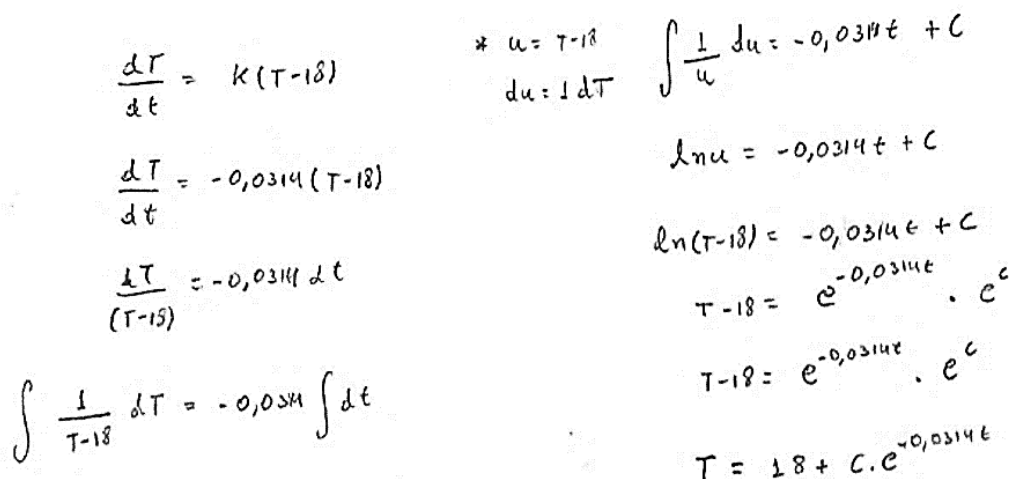 dT/dt = K(T-18)
dT/dt = -0,0314(T-18)
dT/(T-18) = -0,0314 dt
∫ 1/(T-18) dT = -0,0314 ∫ dt
* u = T-18
du = 1 dT
∫ 1/u du = -0,0314t + C
ln u = -0,0314t + C
ln(T-18) = -0,0314t + C
T-18 = e^(-0,0314t) . e^c
T-18 = e^(-0,0314t) . e^c
T = 18 + C.e^(-0,0314t)